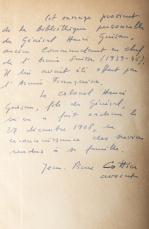 Cet ouvrage provient
de la Bibliothèque personnelle
du Général Henri Guisan,
ancien Commandant en chef
de l'Armée Suisse (1939-45).
Il lui avait été offert par
l'Armée Française.
Le colonel Henri
Guisan, fils du Général,
m'en a fait cadeau le
27 décembre 1968, en
reconnaissance des services
rendus à sa famille.
Jean-Pierre Cottier
avocat